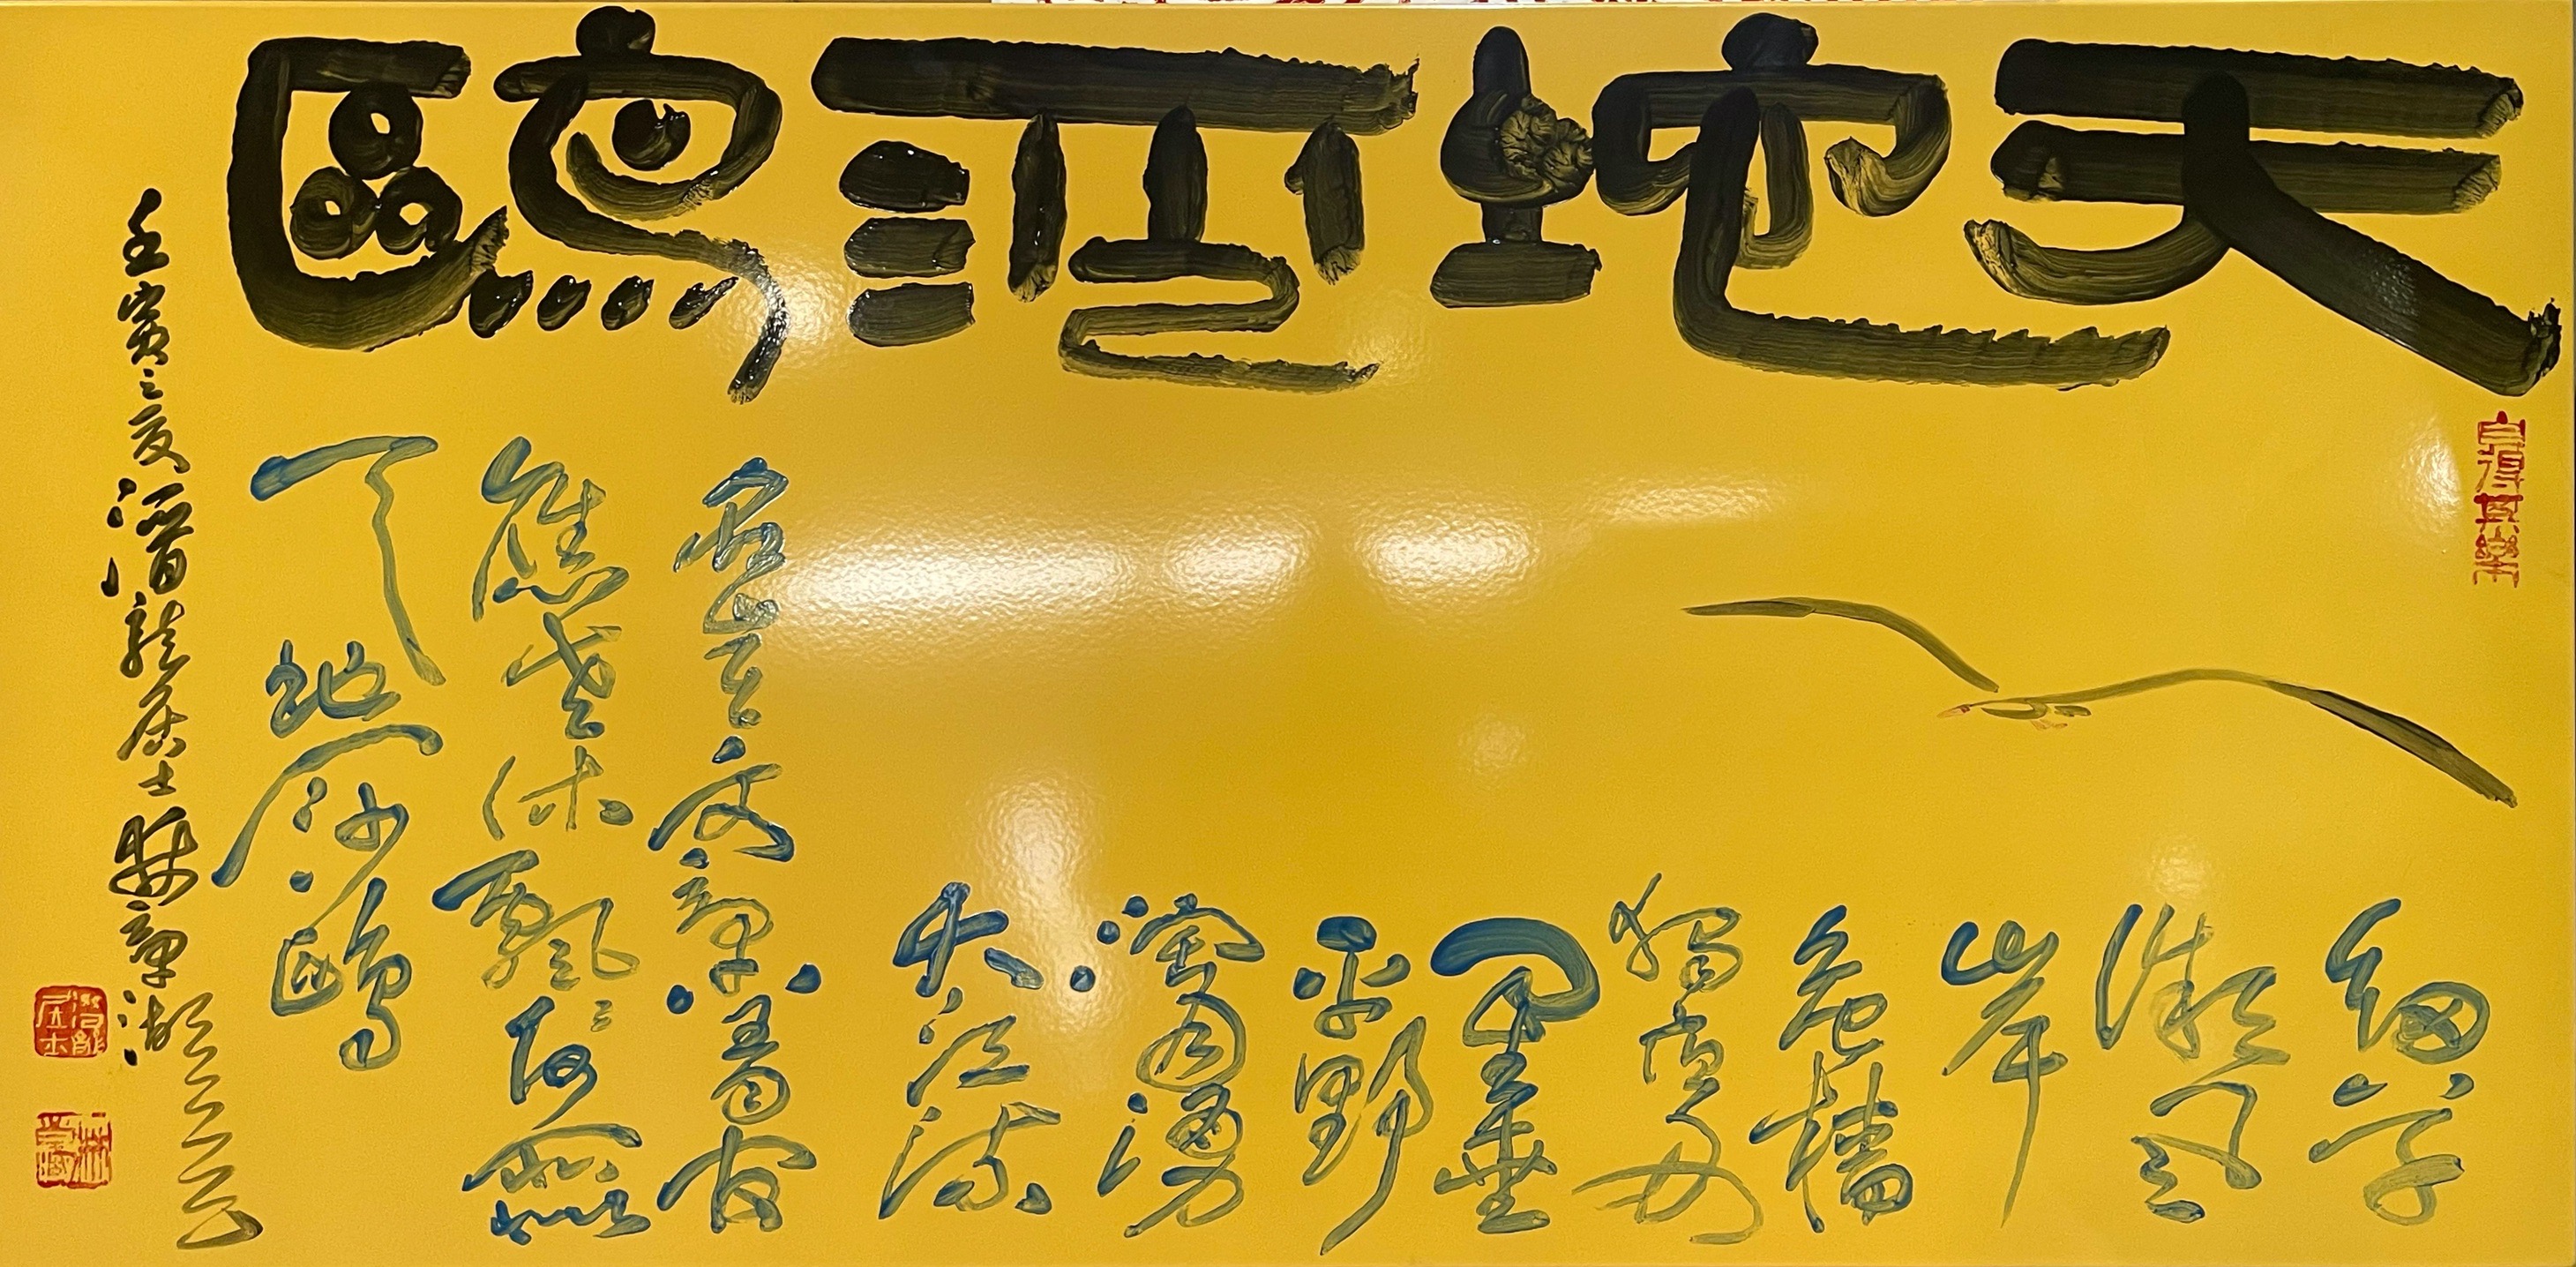 天地沙鷗
自得其樂
細草
微風
岸
危檣
獨夜舟
星垂
平野
闊月湧
大江流
名豈文章著官
應老病休飄々何所似
天地一沙鷗
壬寅之夏潛龍居士林章湖
潛龍居士